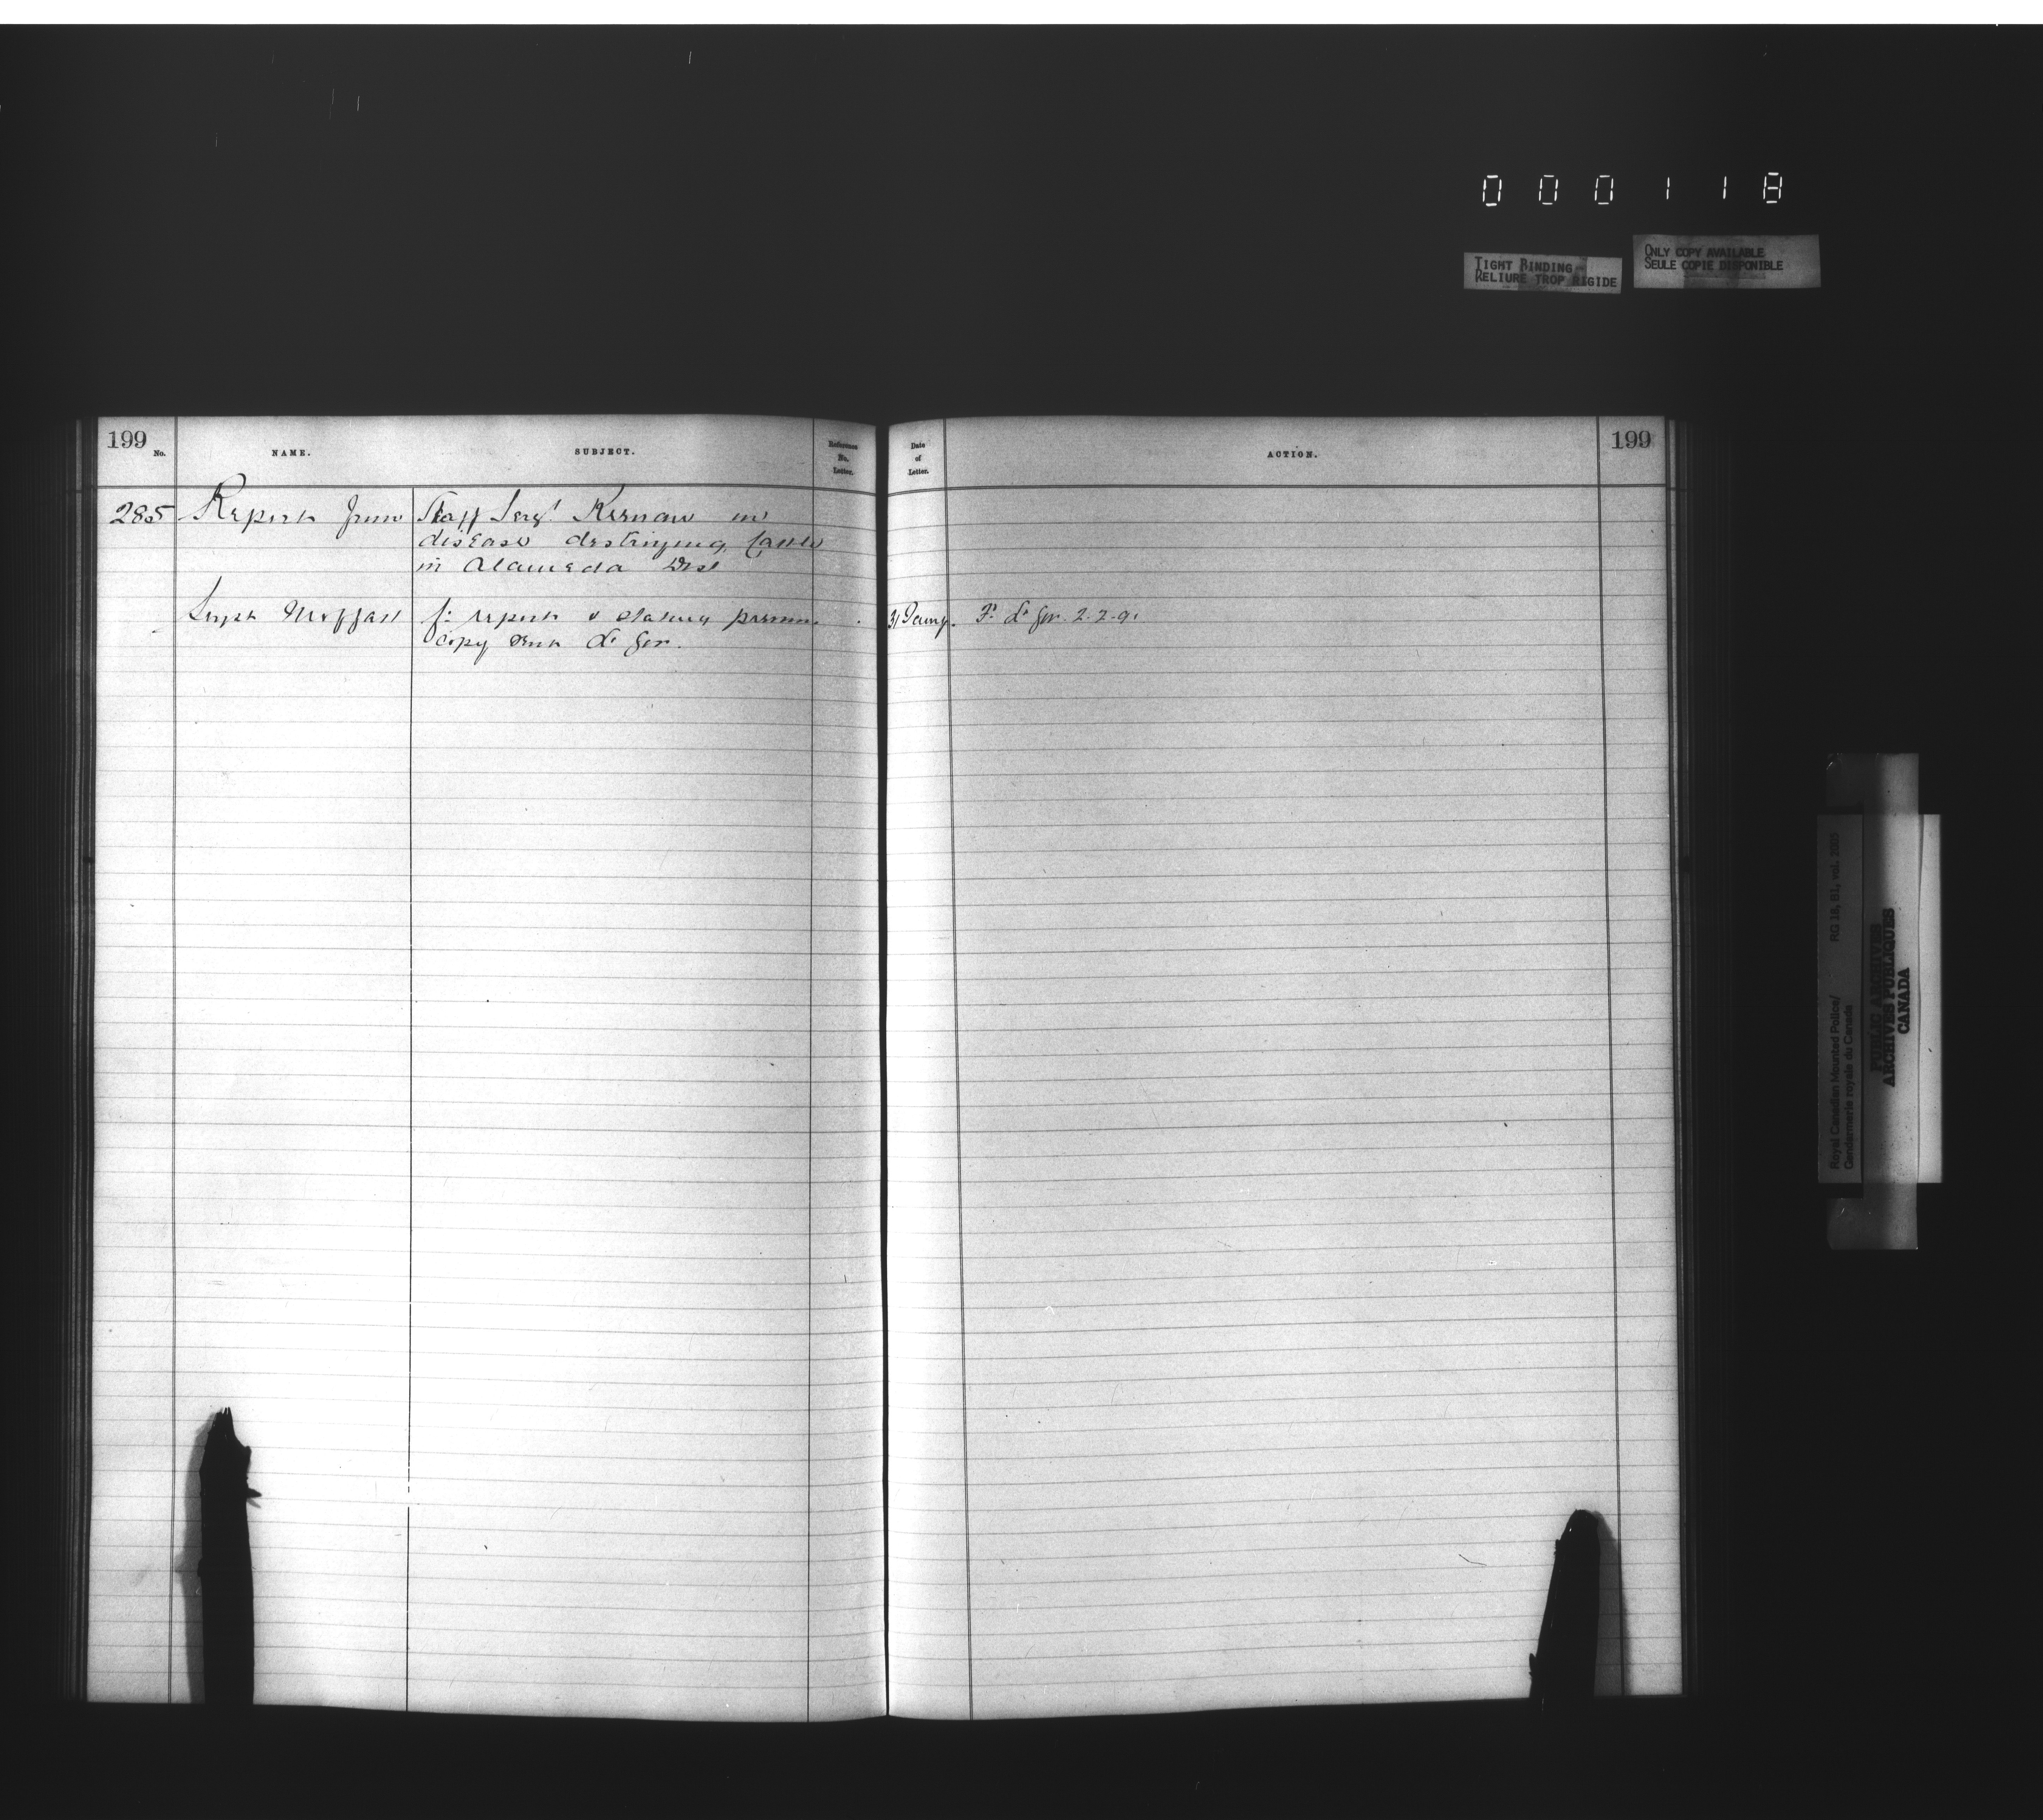 000118
TIGHT BINDING
RELIURE TROP RIGIDE
ONLY COPY AVAILABLE
SEULE COPIE DISPONIBLE
199 No. NAME. SUBJECT. Reference No. Letter. Date of Letter. ACTION. 199
285 Report from Staff Sergt Kernan on
disease destroying Cattle
in Alameda Dist
Supt Moffatt f: report & stating
copy sent Lt Gov. 31 Jany. Fd Lt Gov. 2.2.91
Royal Canadian Mounted Police/
Gendarmerie royale du Canada
RG 18, B1, vol. 2005
PUBLIC ARCHIVES
ARCHIVES PUBLIQUES
CANADA